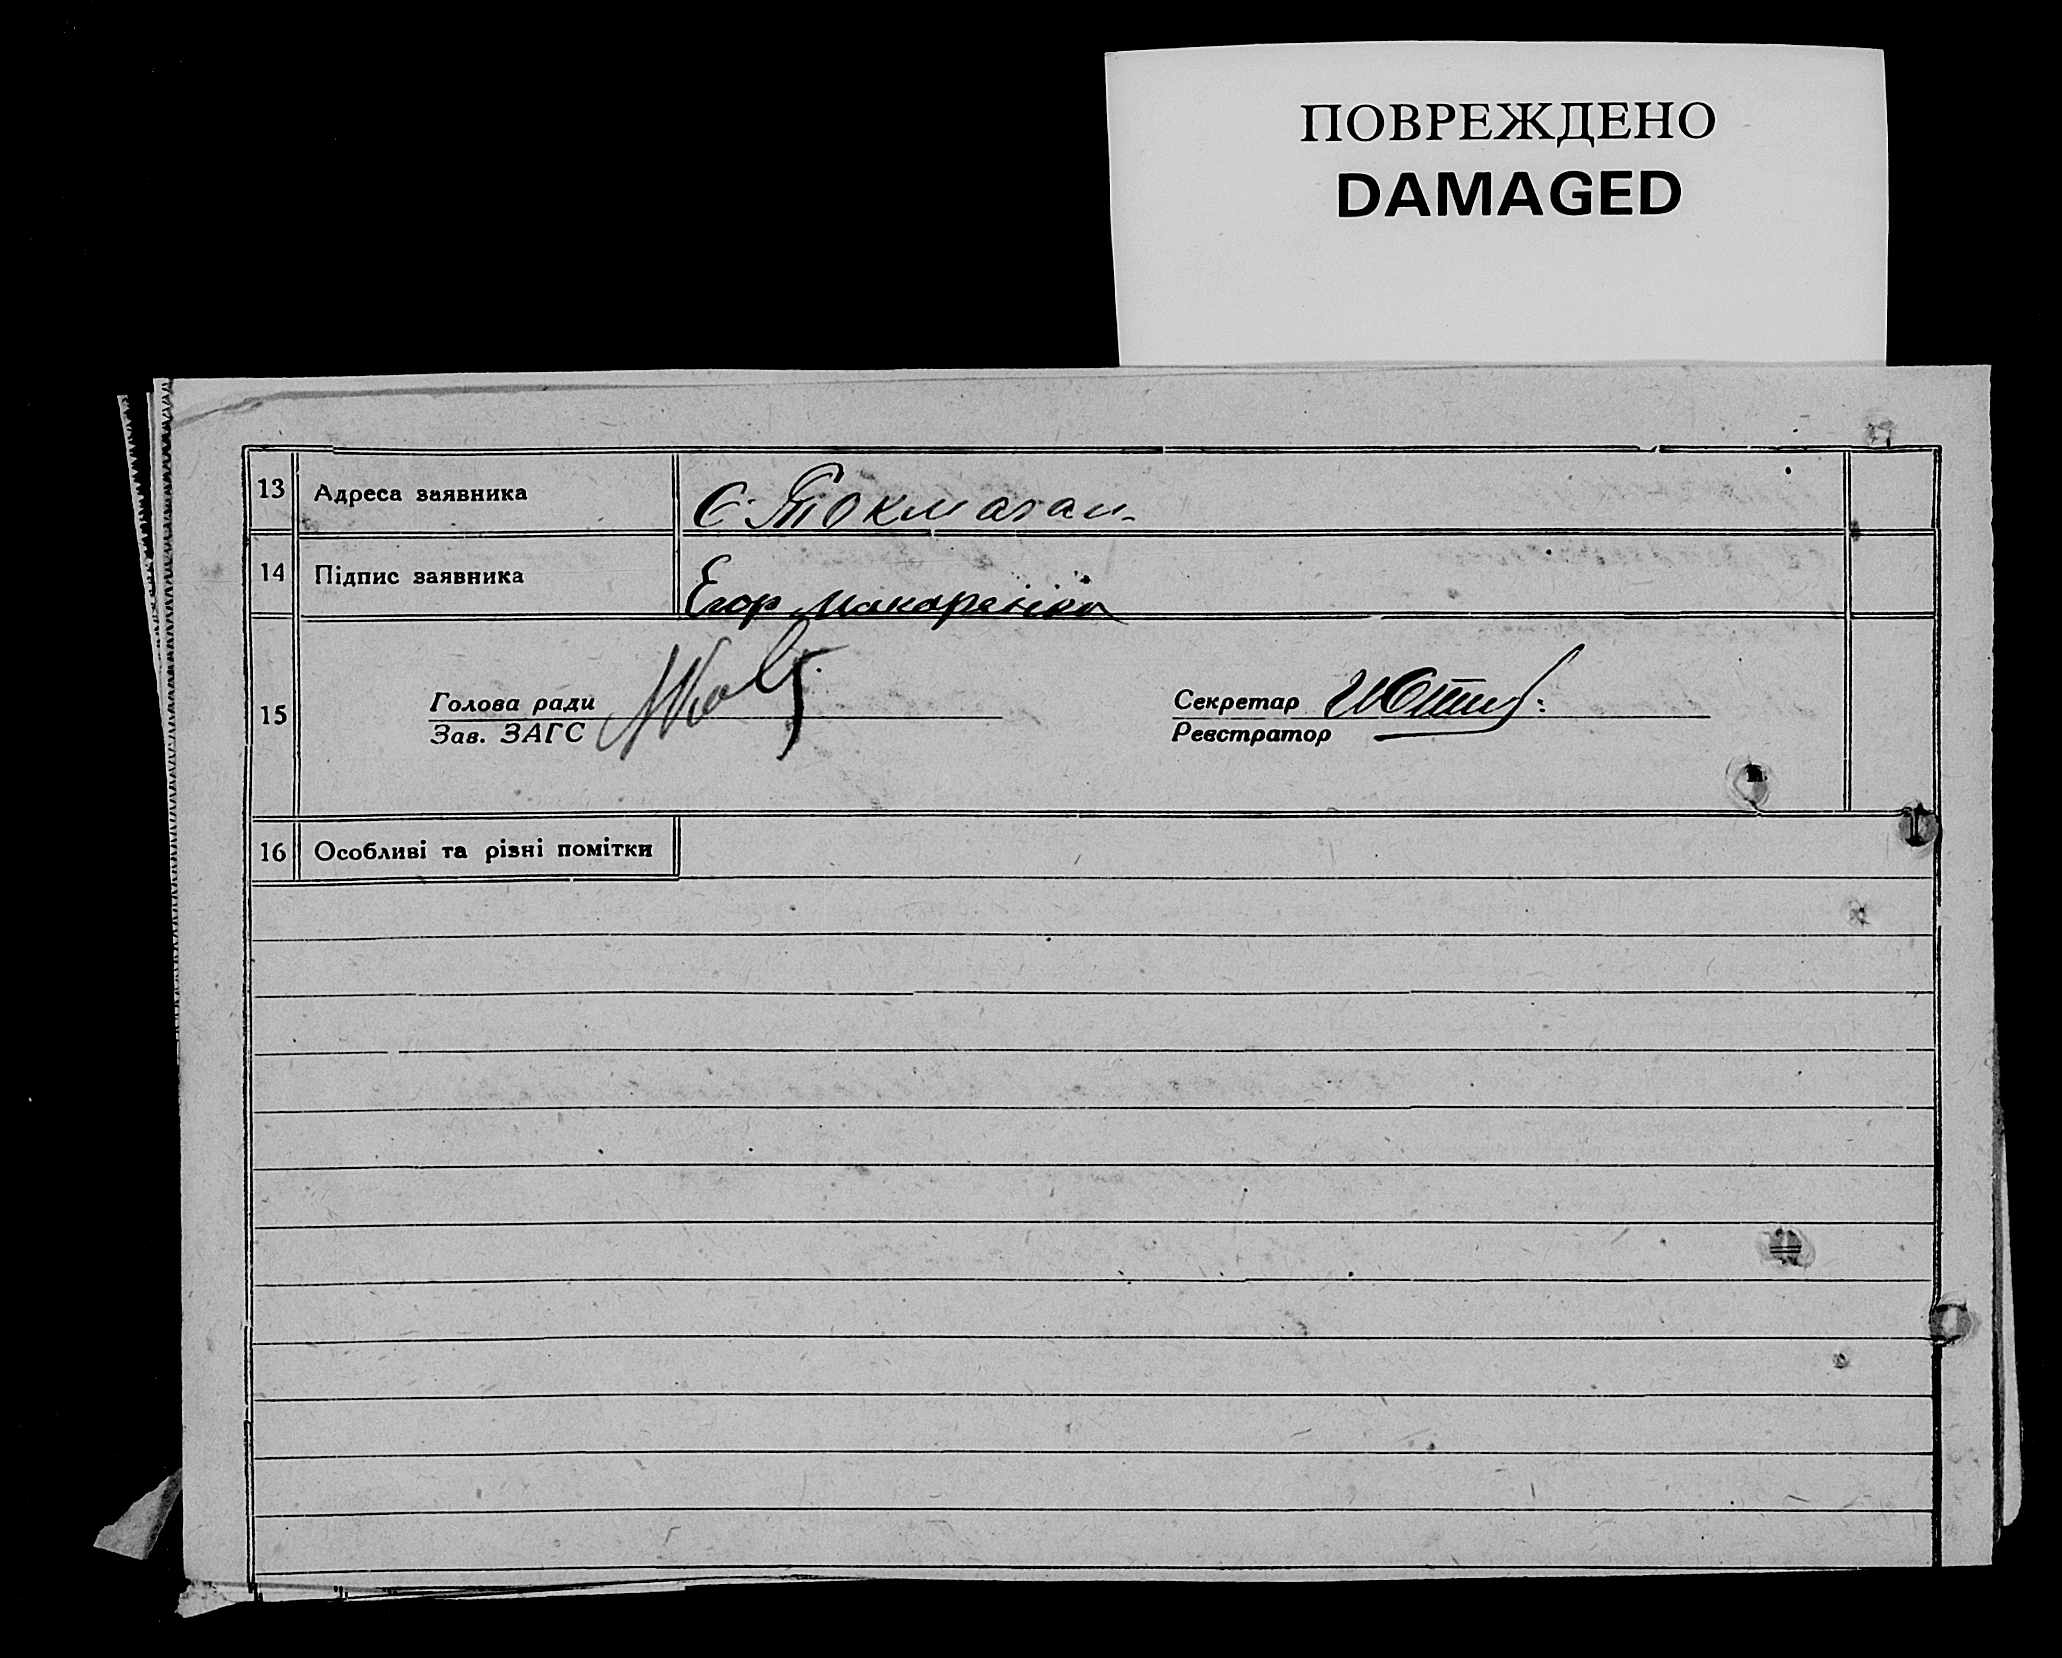 ПОВРЕЖДЕНО
DAMAGED
13 Адреса заявника
14 Підпис заявника Егор Макаренко
15 Голова ради
Зав. ЗАГС
Секретар
Реєстратор
16 Особливі та різні помітки